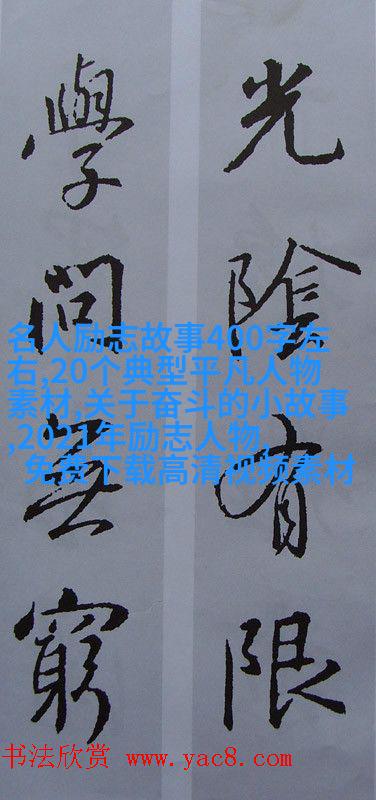 光陰有限
學問無窮
名人励志故事400字左
右,20个典型平凡人物
素材,关于奋斗的小故事
,2021年励志人物,
免费下载高清视频素材
书法欣赏 www.yac8.com